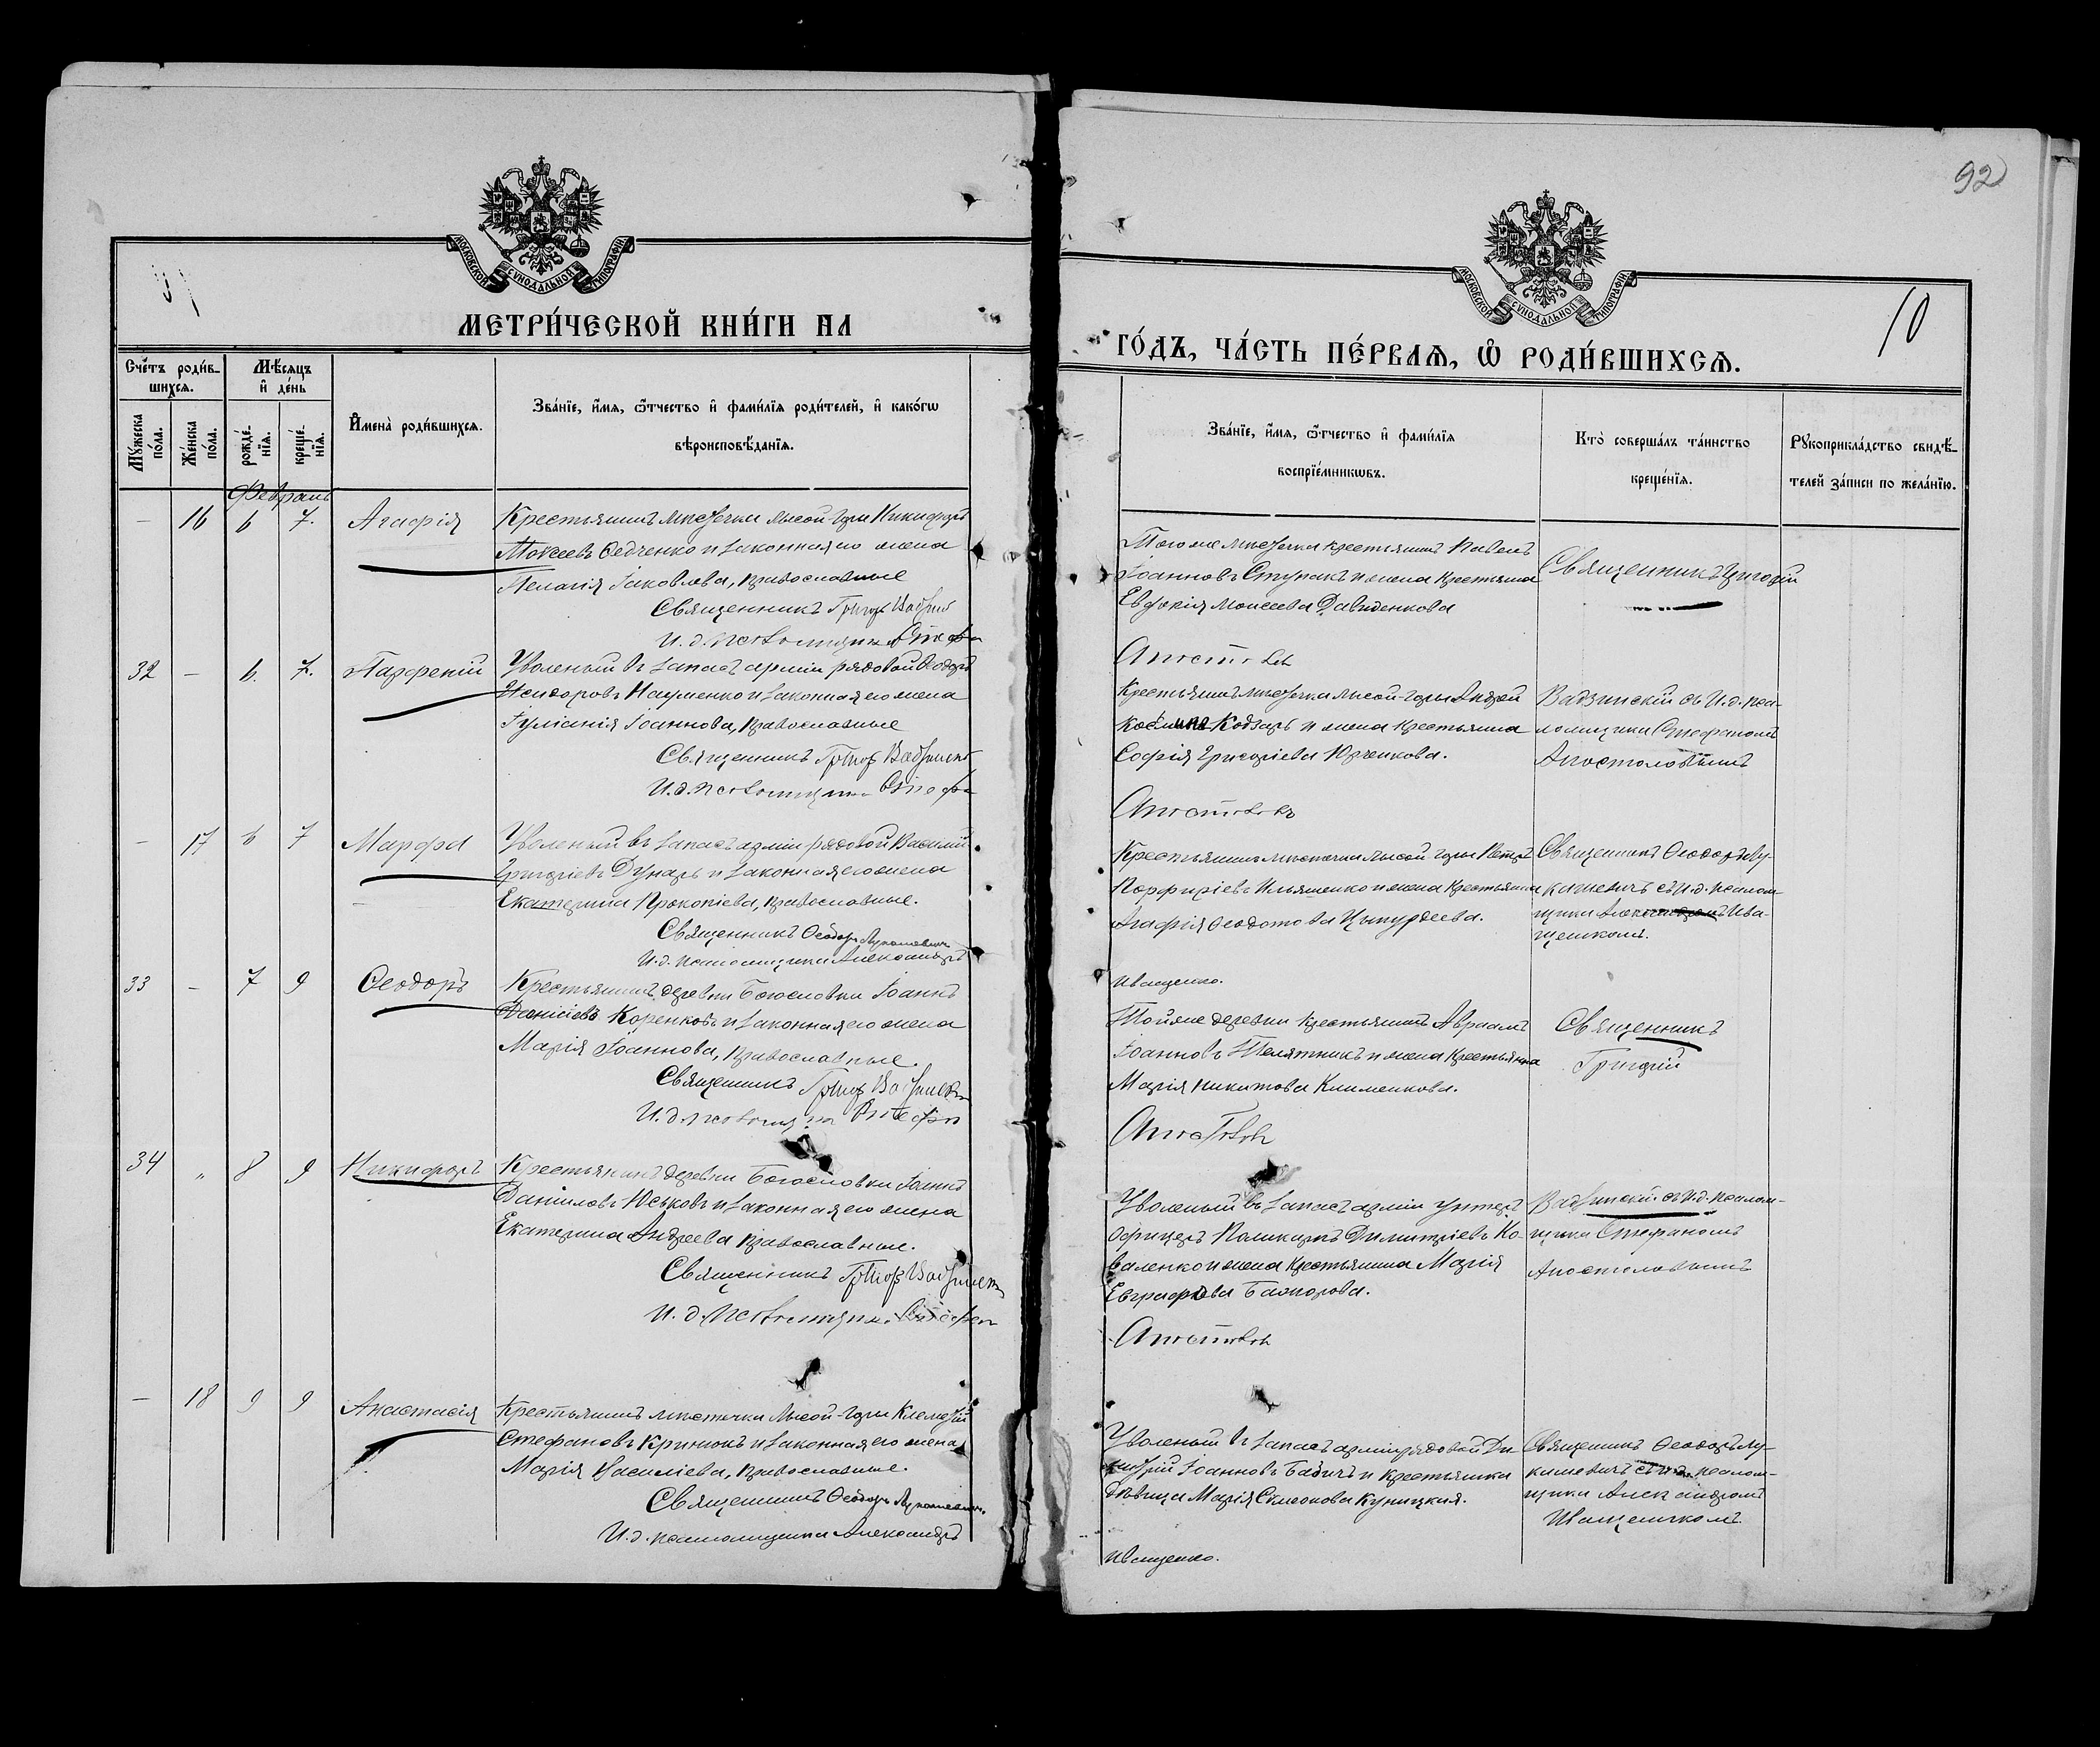 МОСКОВСКОЙ СѴНОДАЛЬНОЙ ТИПОГРАФІИ
МЕТРИ́ЧЕСКОЙ КНИ́ГИ НА
Сче́тъ роди́в-
шихся.
Мѣ́сяцъ
и҆ де́нь
Мꙋ́жеска
по́ла.
Же́нска
по́ла.
рожде́-
нїя.
креще́-
нїя.
И҆мена̀ роди́вшихся.
Зва́нїе, и҆́мя, ѻ҆́тчество и҆ фами́лїя роди́телей, и҆ како́гѡ
вѣроисповѣ́данїя.
Февраль
— 16 6 7. Агафія
Крестьянинъ мѣстечка Лысой-Горы Никифоръ
Моѵсеевъ Федченко и законная его жена
Пелагія Іаковлева, православные
Священникъ Григор Вадзинскі
И.д. псаломщика Стефа
32 — 6. 7. Парфеній
Уволеный въ запасъ арміи рядовой Ѳеодоръ
Исидоровъ Науменко и законная его жена
Іуліанія Іоаннова, православные
Священникъ Григор Вадзинскі
И.д. псаломщика Стефа
— 17 6 7 Марфа
Уволеный въ запасъ арміи рядовой Василій
Григоріевъ Дунаръ и законная его жена
Екатерина Прокопіева, православные.
Священникъ Ѳеодоръ Лукашевичъ
И.д. псаломщика Александръ
33 — 7 9 Ѳеодоръ
Крестьянинъ деревни Богословки Іоаннъ
Діонисіевъ Коренковъ и законная его жена
Марія Іоаннова, православные.
Священникъ Григор Вадзинскі
И.д. псаломщика Стефан
34 „ 8 9 Никифоръ
Крестьянинъ деревни Богословки Іоаннъ
Даніиловъ Юськовъ и законная его жена
Екатерина Андреева православные.
Священникъ Григор Вадзинскі
И.д. псаломщика Стефан
— 18 9 9 Анастасія
Крестьянинъ мѣстечка Лысой-Горы Клеметій
Стефановъ Кринюкъ и законная его жена
Марія Василіева, православные.
Священникъ Ѳеодоръ Лукашевичъ
И.д. псаломщика Александръ
92
МОСКОВСКОЙ СѴНОДАЛЬНОЙ ТИПОГРАФІИ
10
ГО́ДЪ, ЧА́СТЬ ПЕ́РВАЯ, Ѽ РОДИ́ВШИХСЯ.
Зва́нїе, и҆́мя, ѻ҆́тчество и҆ фами́лїя
воспрїе́мникѡвъ.
Кто̀ соверша́лъ та́инство
креще́нїя.
Рꙋкоприкла́дство свидѣ́-
телей за́писи по жела́нїю.
Того же мѣстечка крестьянинъ Павелъ
Іоанновъ Ступакъ и жена крестьянина
Евдокія Моисеева Давиденкова
Священникъ Григорій
Апостолов
Крестьянинъ мѣстечка Лысой-Горы Андрей
Косминъ Кобзарь и жена крестьянина
Софія Григоріева Юрченкова.
Вадзинскій съ И.д. пса-
ломщика Стефаномъ
Апостоловымъ
Апостоловъ
Крестьянинъ мѣстечка Лысой-Горы Петръ
Порфиріевъ Ильяшенко и жена крестьянина
Агафія Ѳеодотова Цыпурдеева.
Священникъ Ѳеодоръ Лу-
кашевичъ съ И.д. псалом-
щика Александромъ Ива-
щенкомъ.
Иващенко.
Той же деревни крестьянинъ Авраамъ
Іоанновъ Телятникъ и жена крестьянина
Марія Никитова Клименкова.
Священникъ
Григорій
Апостолов
Уволеный въ запасъ арміи унтеръ
офицеръ Поликарпъ Димитріевъ Ко-
валенко и жена крестьянина Марія
Евграфова Бажорова.
Вадзинскій съ И.д. псалом-
щика Стефаномъ
Апостоловымъ
Апостолов
Уволеный въ запасъ арміи рядовой Ди-
митрій Іоанновъ Бабичъ и крестьянка
дѣвица Марія Симеонова Куницкая.
Священникъ Ѳеодоръ Лу-
кашевичъ съ И.д. псалом-
щика Александромъ
Иващенкомъ.
Иващенко.